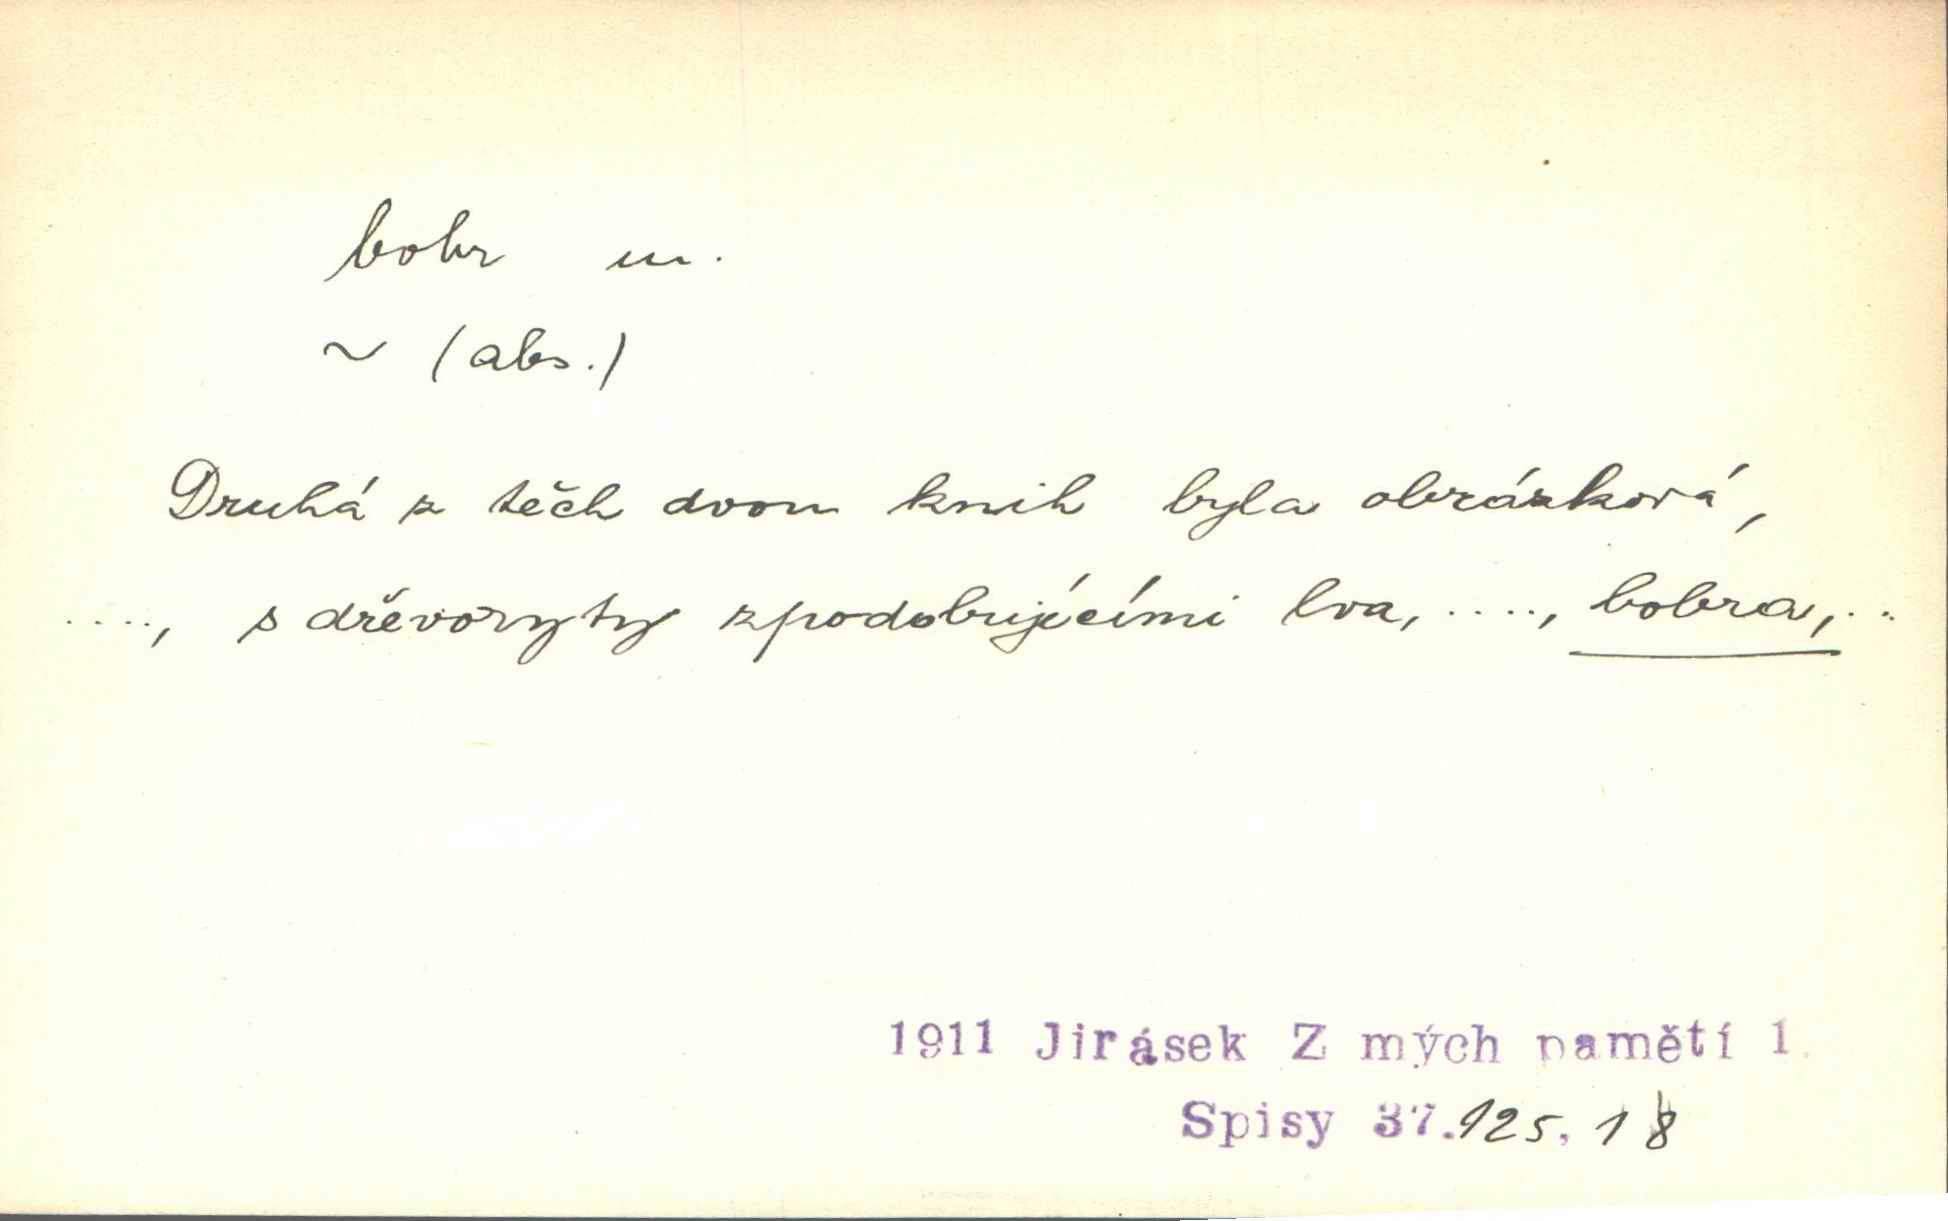 bobr m.
~ (abs.)
Druhá z těch dvou knih byla obrázková,
...., s dřevoryty zpodobujícími lva, ...., bobra, ..
1911 Jirásek Z mých pamětí 1.
Spisy 37.125, 18